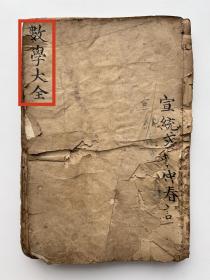 數學大全
宣統弍年仲春立